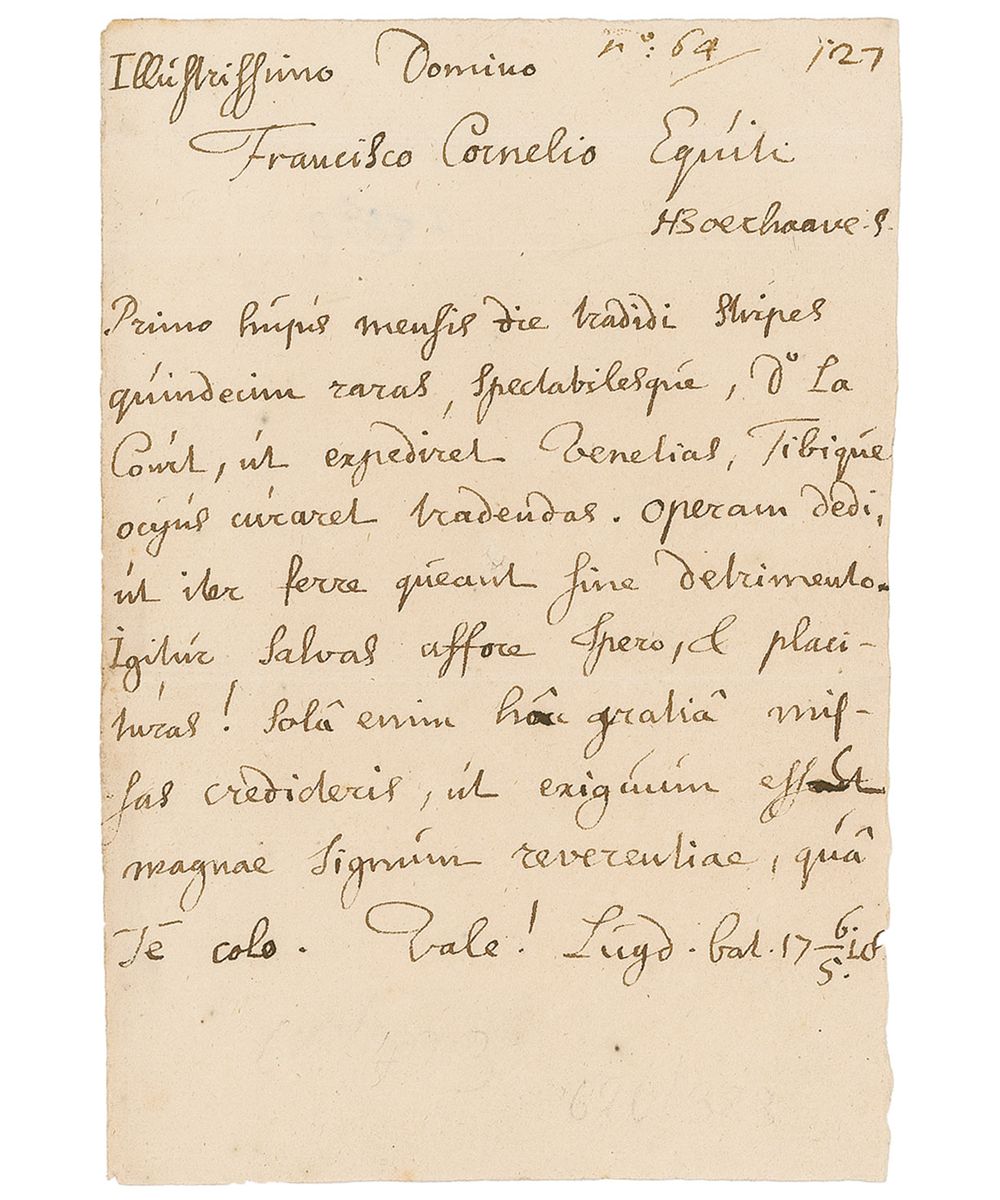 Illustrissimo Domino nº: 64 127
Francisco Cornelio Equiti
HBoerhaave. S.
Primo hujus mensis die tradidi Stirpes
quindecim raras, spectabilesque, Dº La
Court, ut expediret Venetias, Tibique
ocyus curaret tradendas. Operam dedi,
ut iter ferre queant sine detrimento.
Igitur salvas affore spero, & placi-
turas! Solâ enim hâc gratiâ mis-
sas credideris, ut exiguum esset
magnae signum reverentiae, quâ
Te colo. Vale! Lugd. bat. 17 6/5. 18